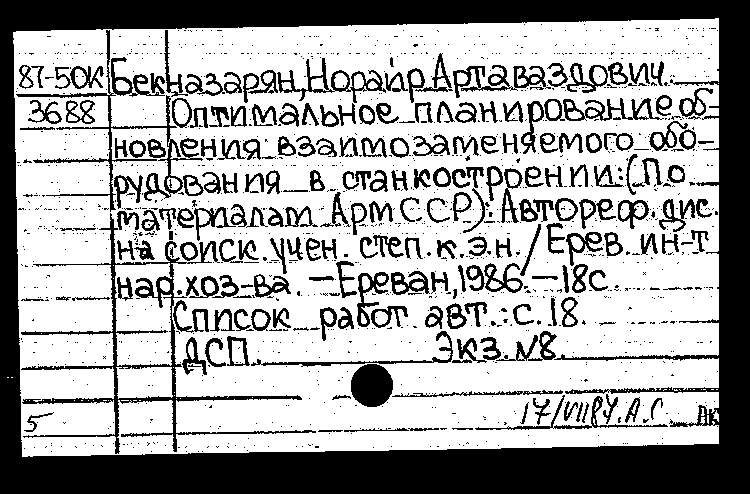 87-50К Бекназарян, Норайр Артаваздович.
3688 Оптимальное планирование об-
новления взаимозаменяемого обо-
рудования в станкостроении: (По
материалам Арм ССР): Автореф. дис.
на соиск. учен. степ. к.э.н. / Ерев. ин-т
нар. хоз-ва. — Ереван, 1986. — 18с.
Список работ авт.: с. 18.
ДСП. Экз. N8.
17/VII87. А.С.
5